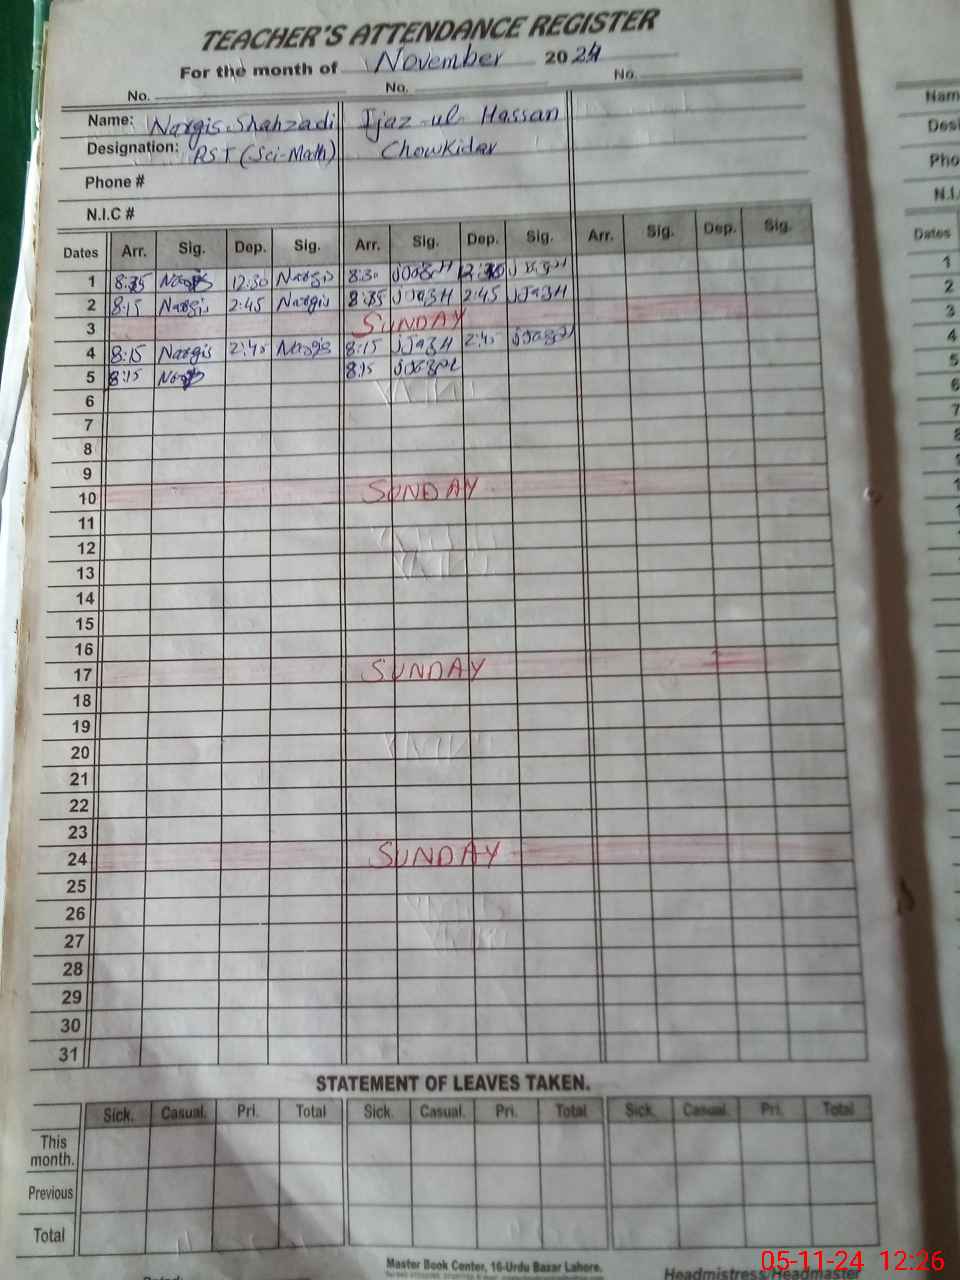 TEACHER'S ATTENDANCE REGISTER
For the month of November 2024
No. No. No.
Name: Nargis Shahzadi Ijaz-ul-Hassan
Designation: (Sci-Math) Chowkidar
Phone #
N.I.C #
Dates Arr. Sig. Dep. Sig. Arr. Sig. Dep. Sig. Arr. Sig. Dep. Sig.
1 Nargis 12:30 Nargis 8:30
2 8:15 Nargis 2:45 Nargis 2:45
3 SUNDAY
4 8:15 Nargis 2:45 Nargis 8:15 2:45
5 8:15 8:15
6
7
8
9
10 SUNDAY
11
12
13
14
15
16
17 SUNDAY
18
19
20
21
22
23
24 SUNDAY
25
26
27
28
29
30
31
STATEMENT OF LEAVES TAKEN.
Sick. Casual. Pri. Total Sick. Casual. Pri. Total Sick. Casual. Pri. Total
This month.
Previous
Total
Master Book Center, 16-Urdu Bazar Lahore.
Headmistress/Headmaster
05-11-24 12:26
Nam
Desi
Pho
N.I.
Dates
1
2
3
4
5
6
7